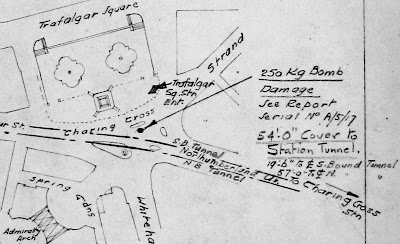 Trafalgar Square
Strand
Trafalgar
Sq. Stn
Ent.
250 Kg Bomb
Damage
See Report
Serial No. A/5/17
54'.0" Cover to
Station Tunnel.
19'-6" To ℄ S. Bound Tunnel
57'-0" To ℄ N. " "
Charing Cross
S.B. Tunnel
Northumberland Av.
N.B. Tunnel
To Charing Cross
Stn.
Spring
Gdns
Admiralty
Arch
Whiteha